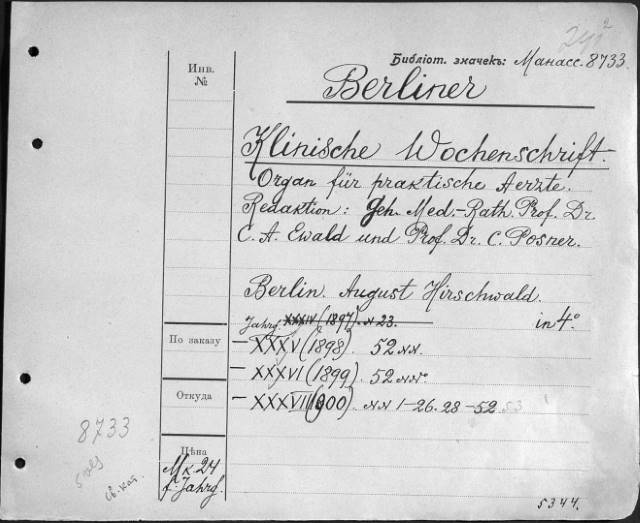 Библіот. значекъ: Манасс. 8733.
Инв.
№
Berliner
Klinische Wochenschrift.
Organ für praktische Aerzte.
Redaktion: Geh. Med.-Rath. Prof. Dr.
C. A. Ewald und Prof. Dr. C. Posner.
Berlin. August Hirschwald.
Jahrg. XXXIV (1897). N 23.
in 4°
По заказу
— XXXV (1898). 52 NN.
— XXXVI (1899). 52 NN°
Откуда
— XXXVII (1900). NN 1-26. 28-52
8733
Цѣна
Mk. 24
f. Jahrg.
св. кат.
5344.